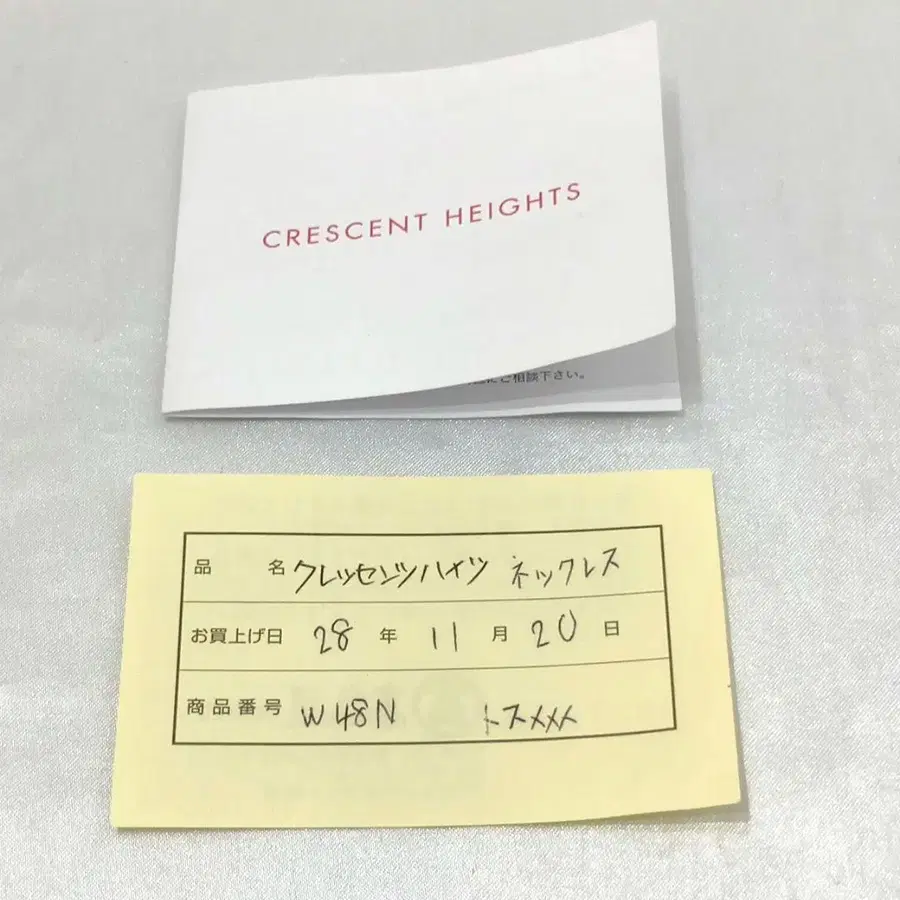 CRESCENT HEIGHTS
にご相談下さい。
品名 クレッセンツハイツ ネックレス
お買上げ日 28年 11月 20日
商品番号 W48N トスメメメ